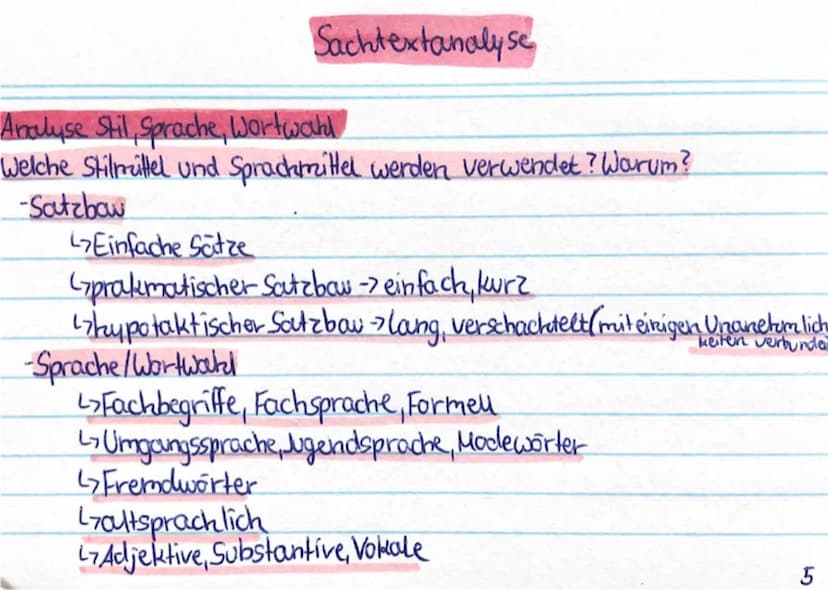 Sachtextanalyse
Analyse Stil, Sprache, Wortwahl
Welche Stilmittel und Sprachmittel werden verwendet? Warum?
-Satzbau
↳Einfache Sätze
↳prakmatischer Satzbau -> einfach, kurz
↳hypotaktischer Satzbau -> lang, verschachtelt (mit einigen Unanehmlich
keiten verbunde
-Sprache/Wortwahl
↳Fachbegriffe, Fachsprache, Formell
↳Umgangssprache, Jugendsprache, Modewörter
↳Fremdwörter
↳altsprachlich
↳Adjektive, Substantive, Vokale
5